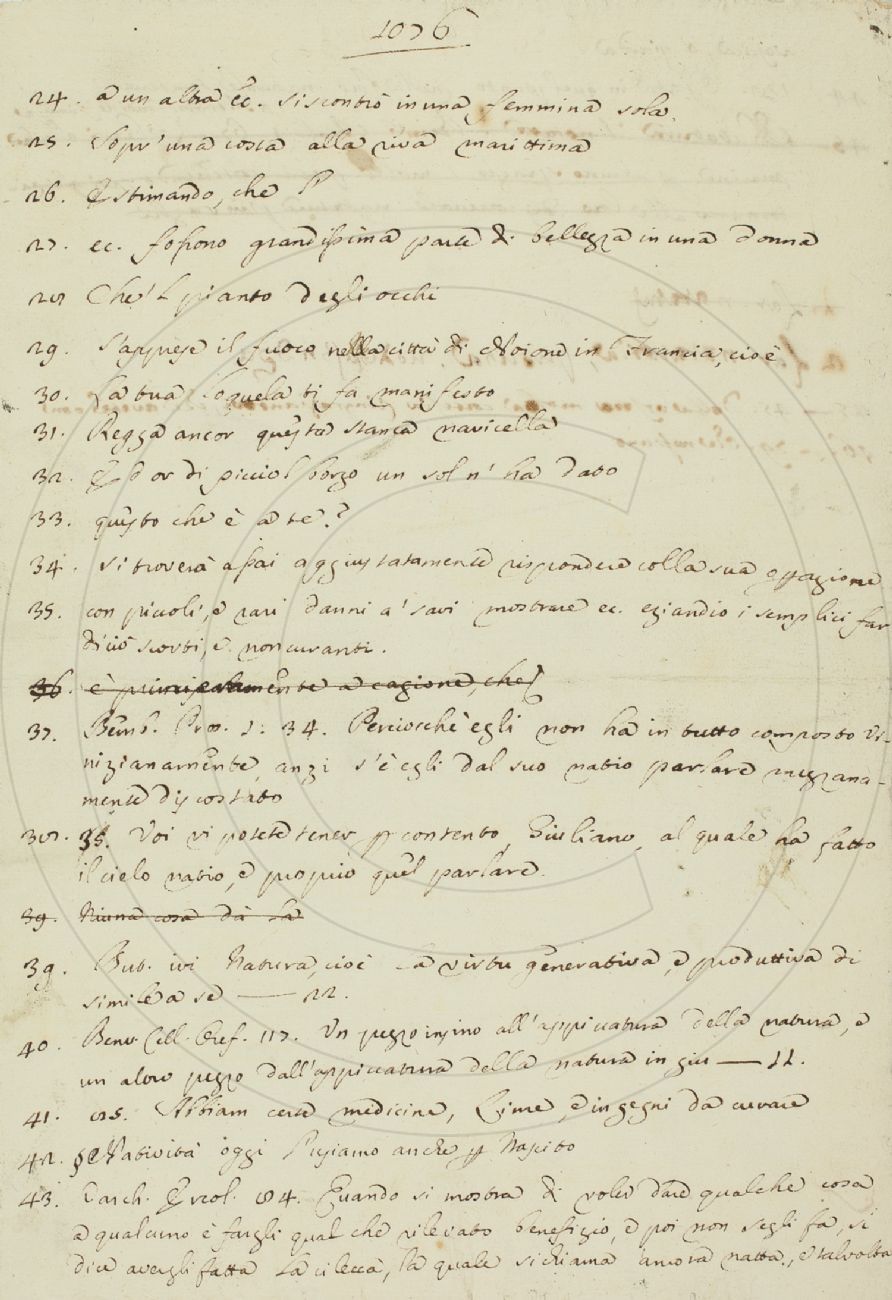 1076
24. a un altra ec. si scontrò in una femmina sola.
25. Sopr' una costa alla riva marittima
26. Estimando, che
27. ec. fossono grandissima parte di bellezza in una donna
28 Che'l pianto degli occhi
29. S'apprese il fuoco nella città di Noione in Francia, cioè
30. La tua loquela ti fa manifesto
31. Regga ancor questa stanca navicella
32. Ed or di picciol borgo un sol n' ha dato
33. questo che è a te?
34. si troverà assai aggiustatamente rispondere colla sua
35. con piccoli, e rari danni a' savi mostrare ec. eziandio i semplici far
di ciò scorti, e noncuranti.
36. è principalmente a cagione, che
37. Bemb. Pros. 1: 34. Perciocchè egli non ha in tutto composto Vi-
nizianamente, anzi s'è egli dal suo natio parlare mezzana-
mente discostato
38. 35. Voi vi potete tener p contento, Giuliano, al quale ha fatto
il cielo natio, e proprio quel parlare.
39. Niuna cosa dà la
39. But. ivi Natura, cioè la virtu generativa, e produttiva di
simile a se — 22.
40. Benv. Cell. Oref. 117. Un pezzo insino all'appiccatura della natura, e
un altro pezzo dall'appiccatura della natura in giu — 11.
41. 85. Abbiam certe medicine, Lime, e ingegni da curare
42. § Natività oggi Pigliamo anche p Nascito
43. Varch. Ercol. 84. Quando si mostra di voler dare qualche cosa
a qualcuno e fargli qualche rilevato benefizio, e poi non segli fa, si
dice avergli fatta la cilecca, la quale si chiama ancora natta, e talvolta